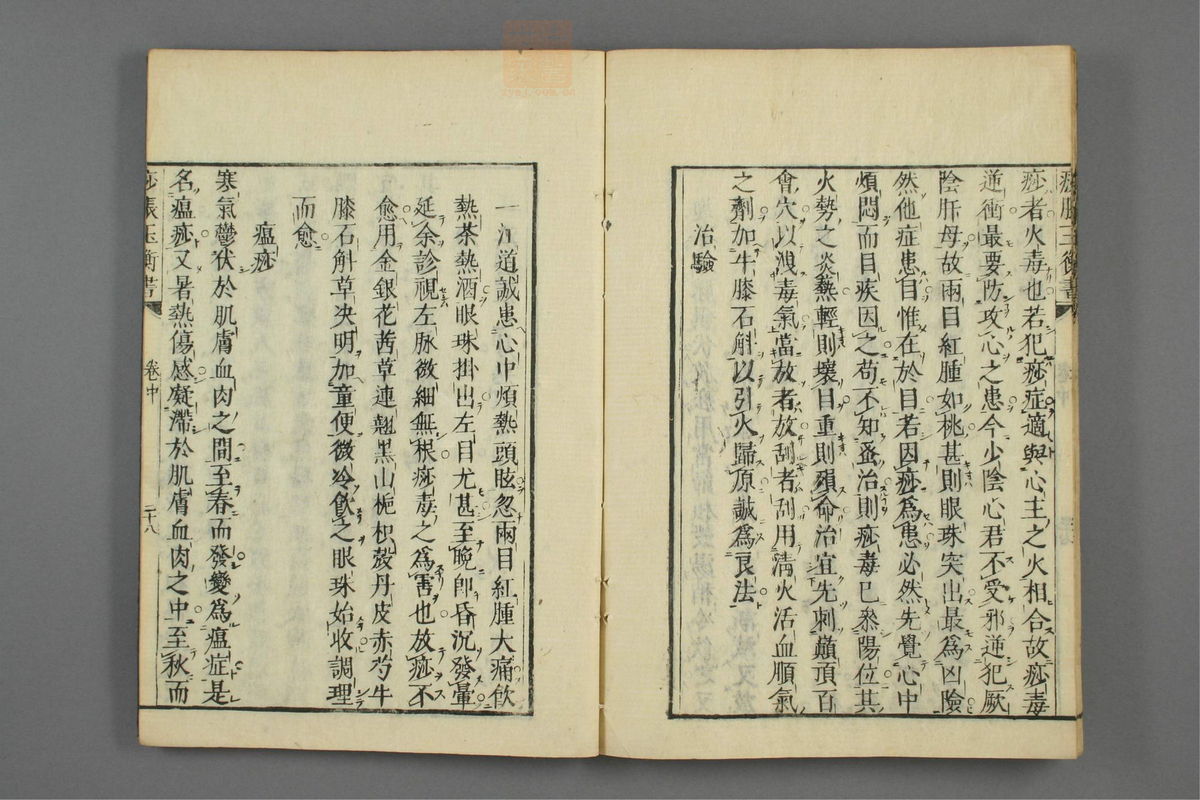 痧脹玉衡書
痧者火毒也若犯痧症適與心主之火相合故痧毒
逆衝最要防攻心之患今少陰心君不受邪逆犯厥
陰肝母故兩目紅腫如桃甚則眼珠突出最爲凶險
然他症患目惟在於目若因痧爲患必然先覺心中
煩悶而目疾因之苟不知蚤治則痧毒已叅陽位其
火勢之炎熱輕則壞目重則殞命治宜先刺巓頂百
會穴以洩毒氣當放者放刮者刮用淸火活血順氣
之劑加牛膝石斛以引火歸原誠爲良法
治驗
一江道誠患心中煩熱頭眩忽兩目紅腫大痛飲
熱茶熱酒眼珠掛出左目尤甚至晩卽昏沉發暈
延余診視左脉微細無根痧毒之爲害也放痧不
愈用金銀花茜草連翹黑山梔枳殼丹皮赤芍牛
膝石斛草决明加童便微冷飲之眼珠始收調理
而愈
瘟痧
寒氣鬱伏於肌膚血肉之間至春而發變爲瘟症是
名瘟痧又暑熱傷感凝滯於肌膚血肉之中至秋而
痧脹玉衡書
卷中
二十八